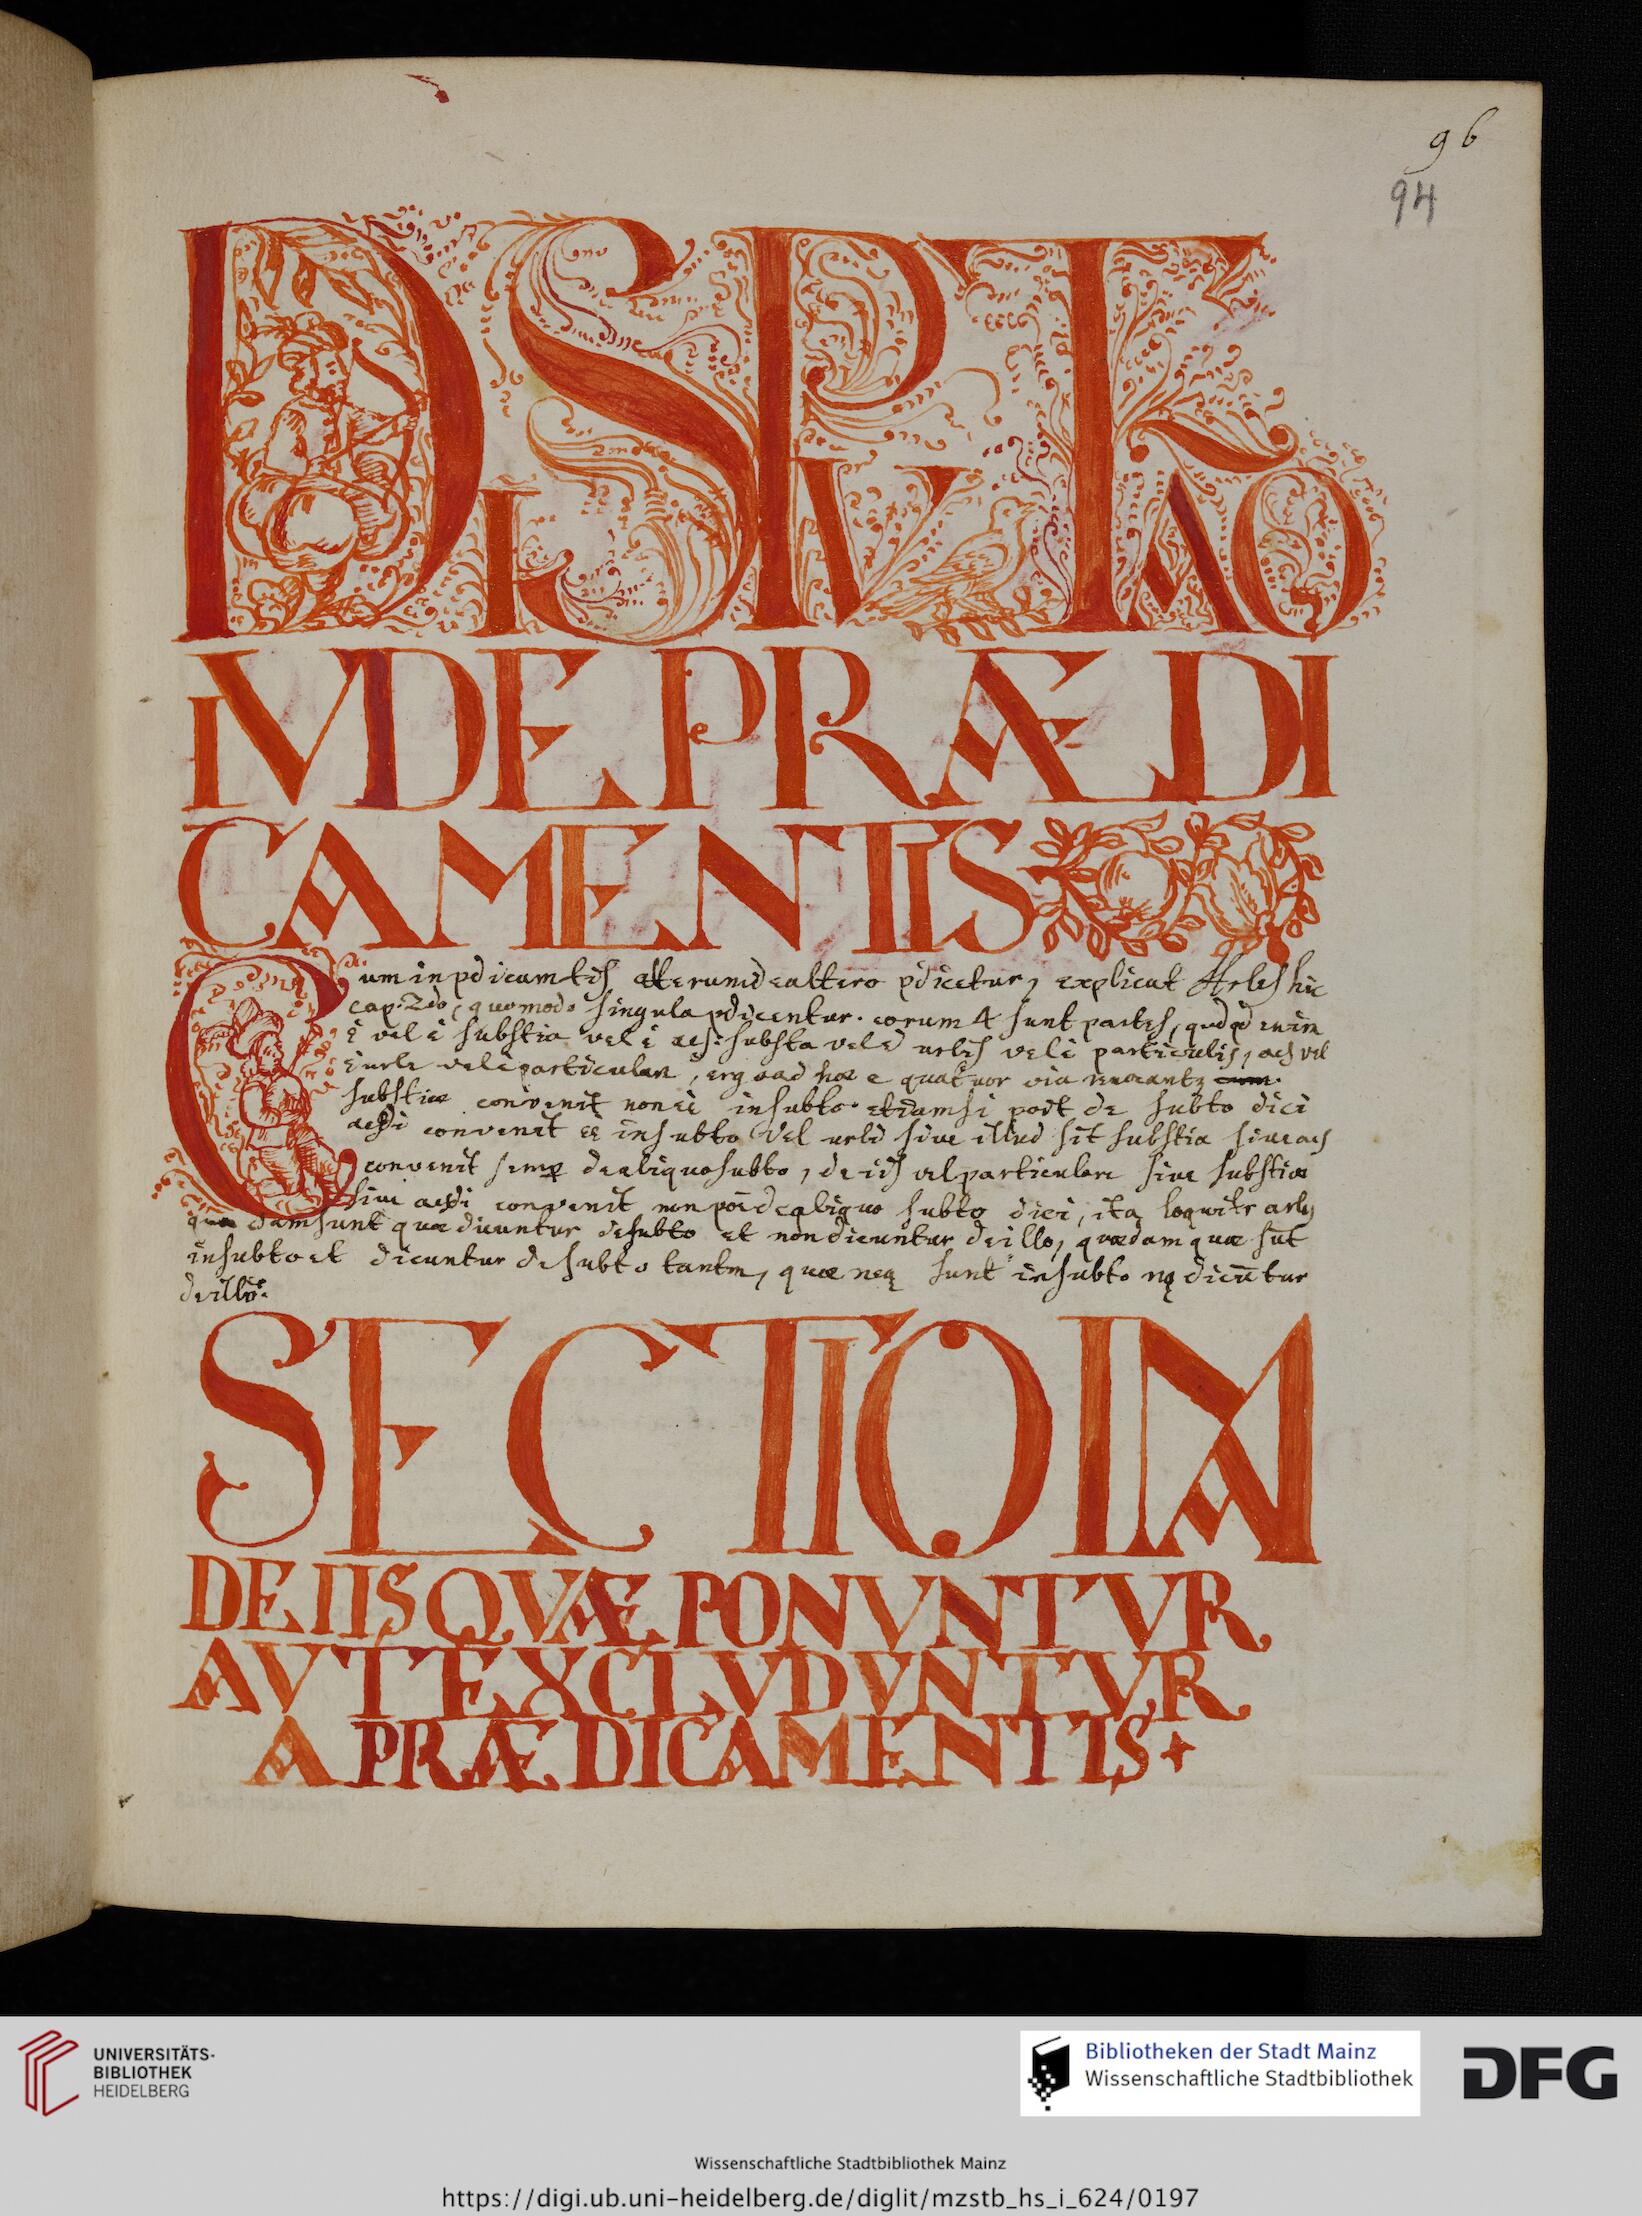 96
94
DISPVTATIO
IV DE PRÆDI
CAMENTIS
Cum in pdicamtis alterum de altero pdicetur, explicat Arles hic
cap. 2do, quomodo singula pdicentur. eorum 4 sunt partes, quidqd enim
ē vel ē substia vel ē acs: substa vel ē urlis vel ē particulis, acs vel
ē urle vel ē particulare, ergo ad hæc quatuor
substiæ convenit non ēē in subto etiamsi poſt de subto dici
acsdi convenit ēē in subto vel urli sive illud sit substia sive acs
convenit semp de aliquo subto, de iis vel particulare sive substiæ
sive acsdi convenit non de aliquo subto dici, ita loquitr arles
quædam sunt quæ dicuntur de subto et non dicuntur de illo, quædam quæ sūt
in subto et dicuntur de subto tantm, quæ neq sunt in subto nq dicūtur
de illo.
SECTIO IMA
DE IIS QVÆ PONVNTVR
AVT EXCLVDVNTVR
A PRÆDICAMENTIS
UNIVERSITÄTS-
BIBLIOTHEK
HEIDELBERG
Bibliotheken der Stadt Mainz
Wissenschaftliche Stadtbibliothek
DFG
Wissenschaftliche Stadtbibliothek Mainz
https://digi.ub.uni-heidelberg.de/diglit/mzstb_hs_i_624/0197